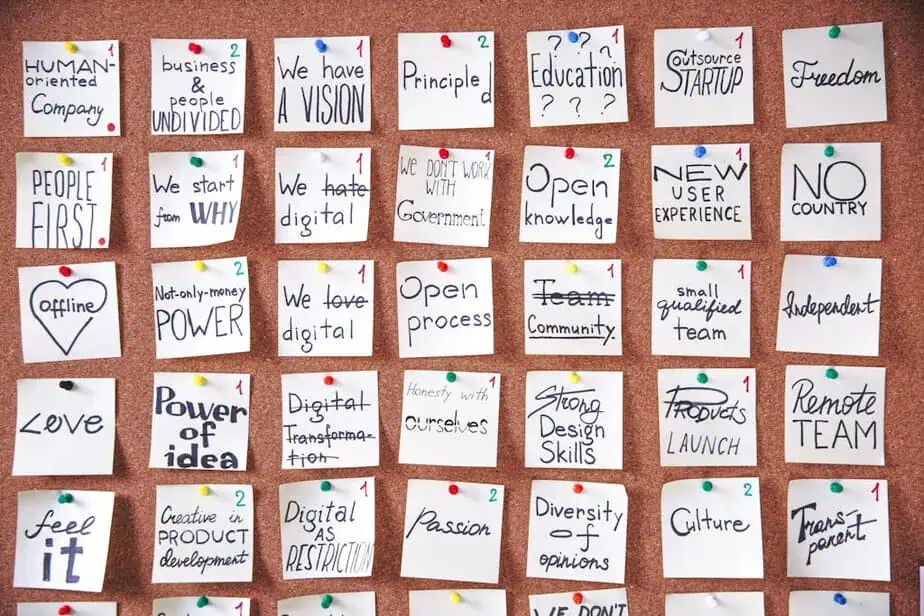 HUMAN-
oriented
Company
1
business
&
people
UNDIVIDED
2
We have
A VISION
1
Principled
2
? ? ?
Education
? ? ?
1
Outsource
STARTUP
1
Freedom
1
PEOPLE
FIRST
1
We start
from WHY
1
We hate
digital
1
We DON'T WORK
WITH
Government
1
Open
knowledge
2
NEW
USER
EXPERIENCE
1
NO
COUNTRY
offline
Not-only-money
POWER
2
We love
digital
1
Open
process
Team
Community
1
small
qualified
team
1
Independent
Love
Power
of
idea
1
Digital
Transforma-
tion
Honesty with
ourselves
1
Strong
Design
Skills
Products
LAUNCH
1
Remote
TEAM
feel
it
Creative in
PRODUCT
development
2
Digital
AS
RESTRICTION
1
Passion
2
Diversity
of
opinions
Culture
2
Trans-
parent
1
1
1
WE DON'T